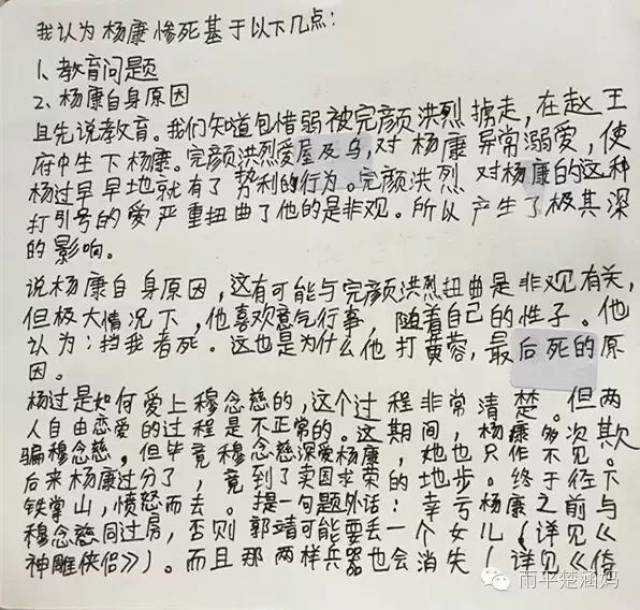 我认为杨康惨死基于以下几点：
1、教育问题
2、杨康自身原因
且先说教育。我们知道包惜弱被完颜洪烈掳走，在赵王
府中生下杨康。完颜洪烈爱屋及乌，对杨康异常溺爱，使
杨过早早地就有了势利的行为。完颜洪烈对杨康的这种
打引号的爱严重扭曲了他的是非观。所以产生了极其深
的影响。
说杨康自身原因，这有可能与完颜洪烈扭曲是非观有关，
但极大情况下，他喜欢意气行事，随着自己的性子。他
认为：挡我者死。这也是为什么他打黄蓉，最后死的原
因。
杨过是如何爱上穆念慈的，这个过程非常清楚。但两
人自由恋爱的过程是不正常的。这期间，杨康多次欺
骗穆念慈。但毕竟穆念慈深爱杨康，她也只作不见。
后来杨康过分了，竟到了卖国求荣的地步。终于径下
铁掌山，愤怒而去。提一句题外话：幸亏杨康之前与
穆念慈同过房，否则郭靖可能要丢一个女儿（详见《
神雕侠侣》）。而且那两样兵器也会消失（详见《倚
雨平楚涵妈